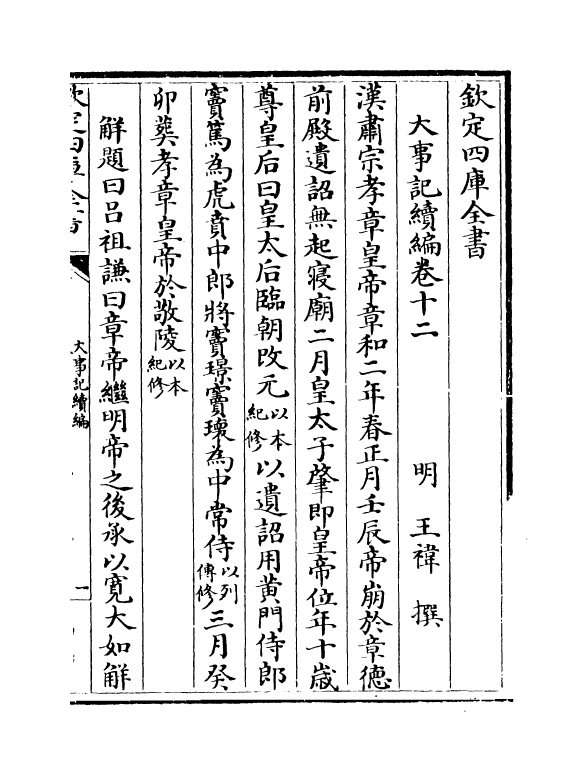 欽定四庫全書
大事記續編卷十二
明 王禕 撰
漢肅宗孝章皇帝章和二年春正月壬辰帝崩於章德
前殿遺詔無起寢廟二月皇太子肇即皇帝位年十歲
尊皇后曰皇太后臨朝改元以本紀修以遺詔用黃門侍郎
竇篤為虎賁中郎將竇璟竇瓌為中常侍以列傳修三月癸
卯葬孝章皇帝於敬陵以本紀修
解題曰呂祖謙曰章帝繼明帝之後承以寬大如解
欽定四庫全書
大事記續編
一